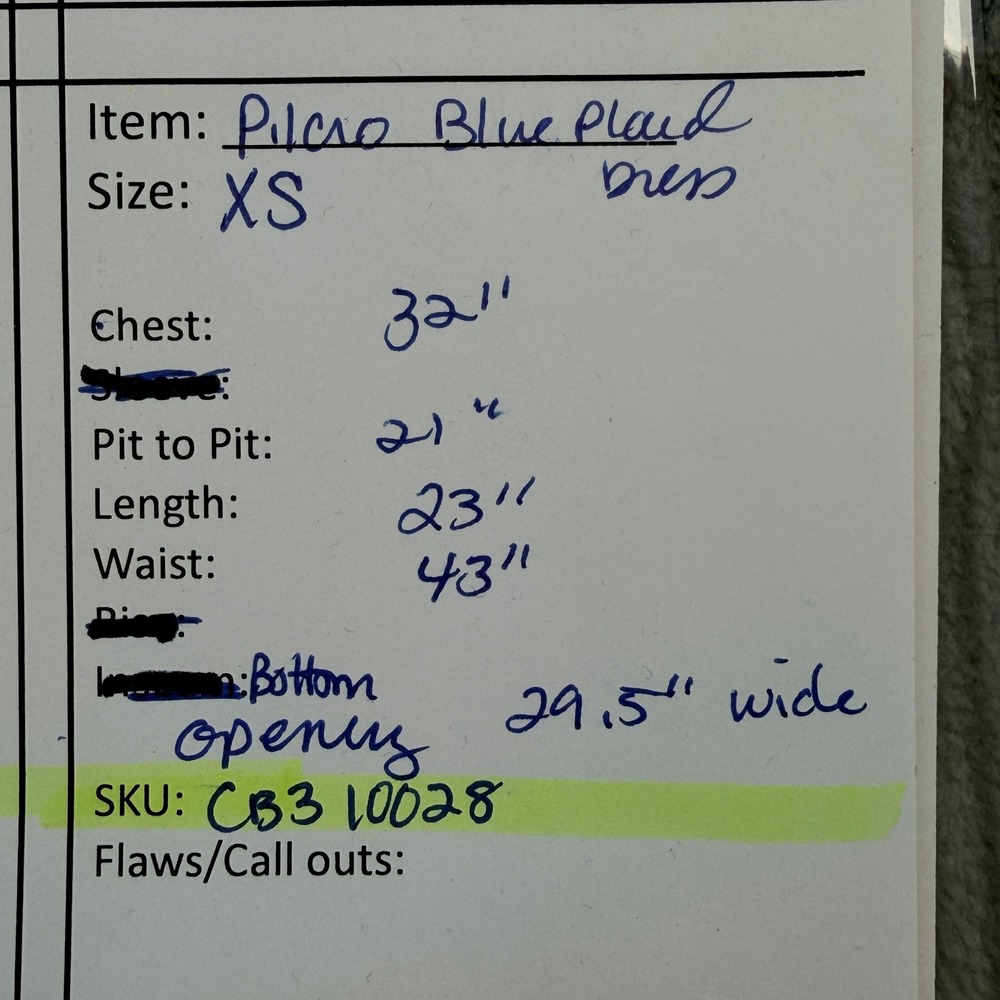 Item: Pilcro Blue Plaid
Dress
Size: XS
Chest: 32"
Pit to Pit: 21"
Length: 23"
Waist: 43"
Bottom
opening 29.5" wide
SKU: CB3 10028
Flaws/Call outs: